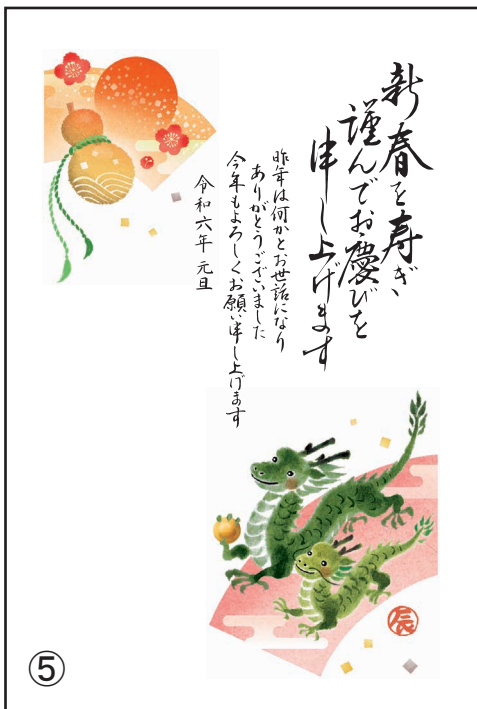 新春を寿ぎ
謹んでお慶びを
申し上げます
昨年は何かとお世話になり
ありがとうございました
今年もよろしくお願い申し上げます
令和六年 元旦
辰
⑤